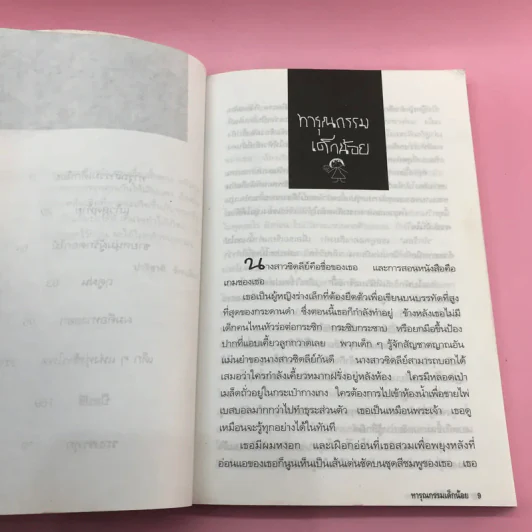 ทารุณกรรม
เด็กน้อย
นางสาวซิดลีย์คือชื่อของเธอ และการสอนหนังสือคือ
เกมของเธอ
เธอเป็นผู้หญิงร่างเล็กที่ต้องยืดตัวเพื่อเขียนบนบรรทัดที่สูง
ที่สุดของกระดานดำ ซึ่งตอนนี้เธอก็กำลังทำอยู่ ข้างหลังเธอไม่มี
เด็กคนไหนหัวร่อต่อกระซิก กระซิบกระซาบ หรือยกมือขึ้นป้อง
ปากที่แอบเคี้ยวลูกกวาดเลย พวกเด็ก ๆ รู้จักสัญชาตญาณอัน
แม่นยำของนางสาวซิดลีย์กันดี นางสาวซิดลีย์สามารถบอกได้
เสมอว่าใครกำลังเคี้ยวหมากฝรั่งอยู่หลังห้อง ใครมีหลอดเป่า
เมล็ดถั่วอยู่ในกระเป๋ากางเกง ใครต้องการไปเข้าห้องน้ำเพื่อขายไพ่
เบสบอลมากกว่าไปทำธุระส่วนตัว เธอเป็นเหมือนพระเจ้า เธอดู
เหมือนจะรู้ทุกอย่างได้ในทันที
เธอมีผมหงอก และเฝือกอ่อนที่เธอสวมเพื่อพยุงหลังที่
อ่อนแอของเธอก็นูนเห็นเป็นเส้นเด่นชัดบนชุดสีชมพูของเธอ เธอ
ทารุณกรรมเด็กน้อย 9